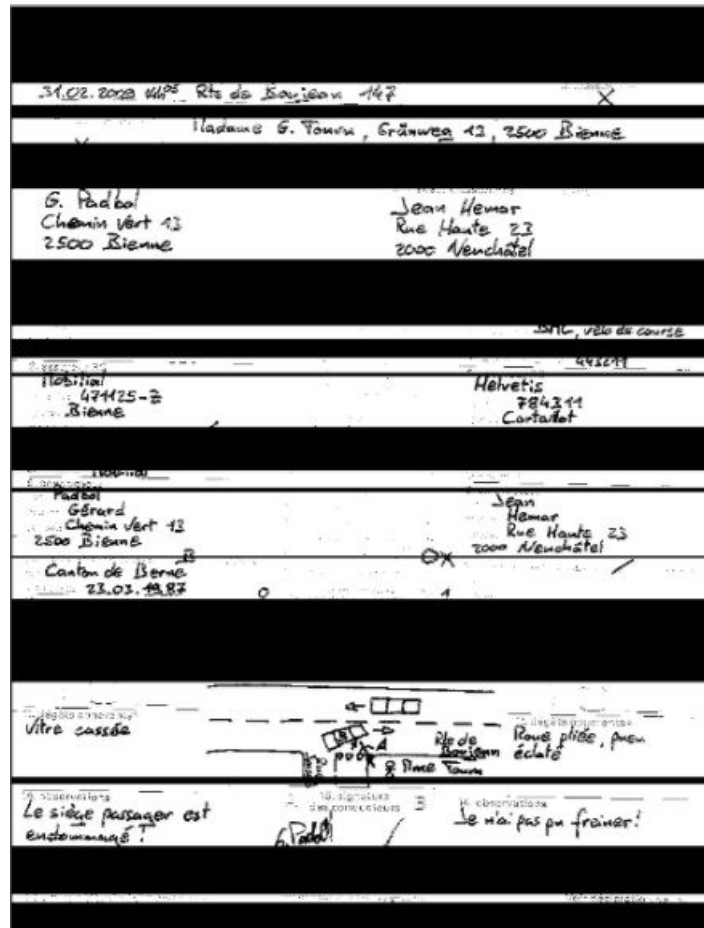 31.02.2009 14h05 Rte de Boujean 147
Madame G. Tourn, Grünweg 13, 2500 Bienne
G. Padbol
Chemin Vert 13
2500 Bienne
Jean Hemar
Rue Haute 23
2000 Neuchâtel
BMC, vélo de course
443211
Mobilial
471125-Z
Bienne
Helvetis
784311
Cortaillot
Padbol
Gérard
Chemin Vert 13
2500 Bienne
Jean
Hemar
Rue Haute 23
2000 Neuchâtel
B
Canton de Berne
23.03.1987
0
1
Vitre cassée
Rte de
Boujean
Mme Tourn
A
Roue pliée, pneu
éclaté
14. observations
Le siège passager est
endommagé !
15. signature
des conducteurs
G. Padbol
14. observations
Je n'ai pas pu freiner!